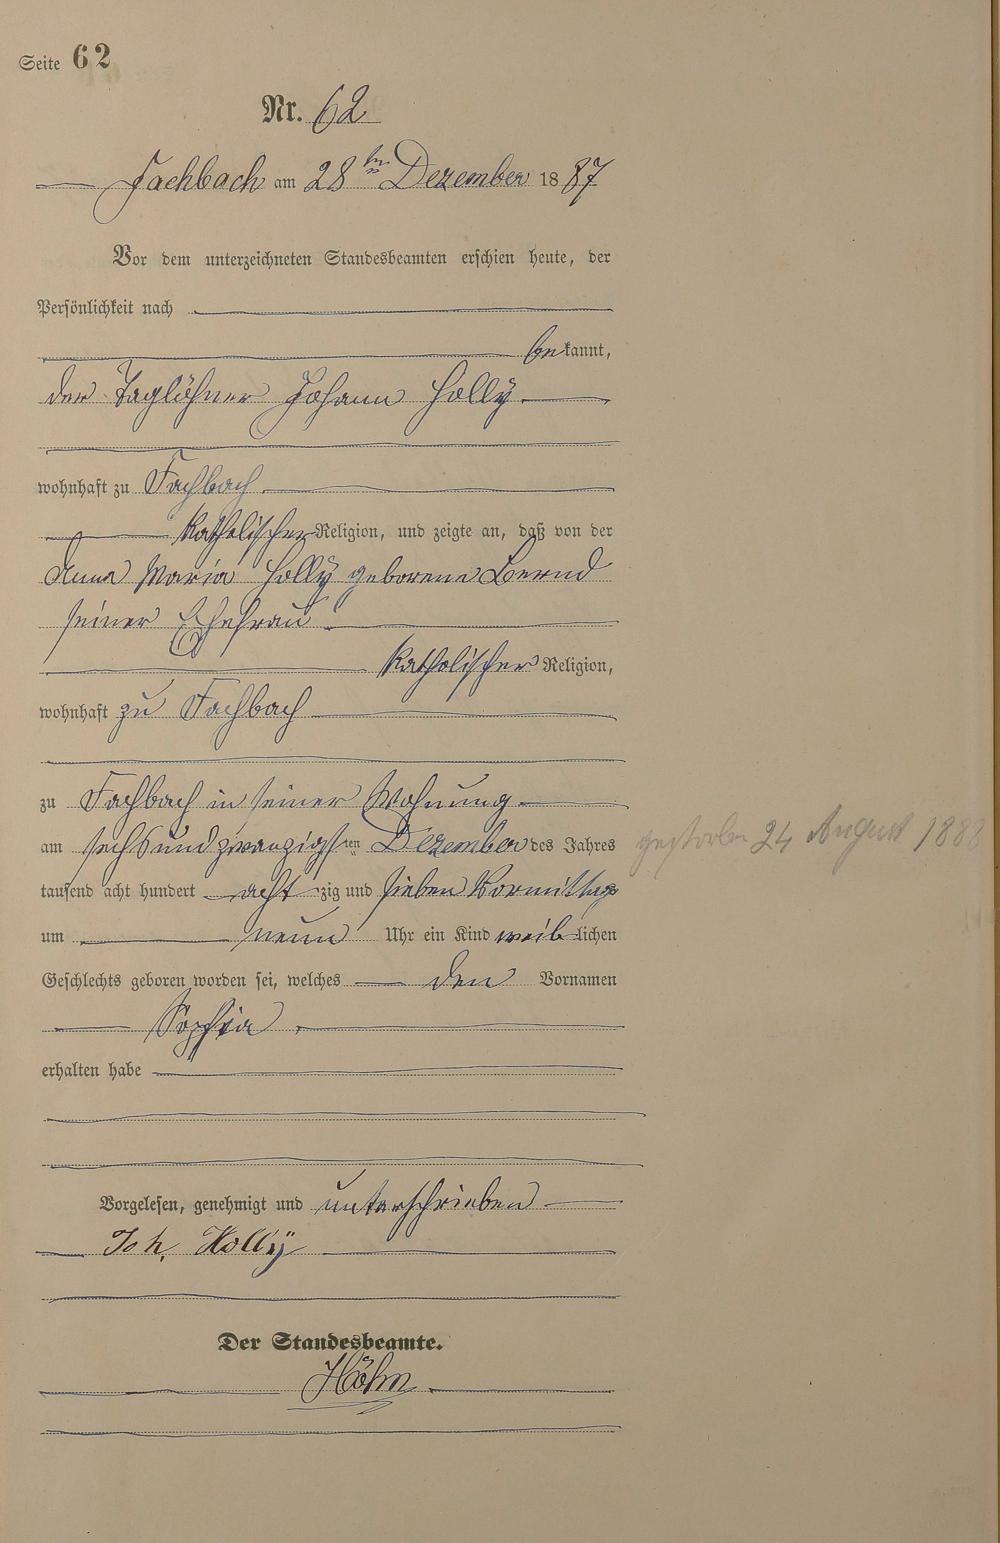 Seite 62
Nr. 62
Fachbach am 28ten Dezember 1887
Vor dem unterzeichneten Standesbeamten erschien heute, der
Persönlichkeit nach
bekannt,
der Taglöhner Johann Holly
wohnhaft zu Fachbach
katholischer Religion, und zeigte an, daß von der
Anna Maria Holly geborene Bernd
seiner Ehefrau
katholischer Religion,
wohnhaft zu Fachbach
zu Fachbach in seiner Wohnung
am sechsundzwanzigsten Dezember des Jahres
tausend acht hundert acht zig und sieben Vormittags
um neun Uhr ein Kind weiblichen
gestorben 24 August 1888
Geschlechts geboren worden sei, welches den Vornamen
Sophia
erhalten habe
Vorgelesen, genehmigt und unterschrieben
Joh. Holly
Der Standesbeamte.
Höhn